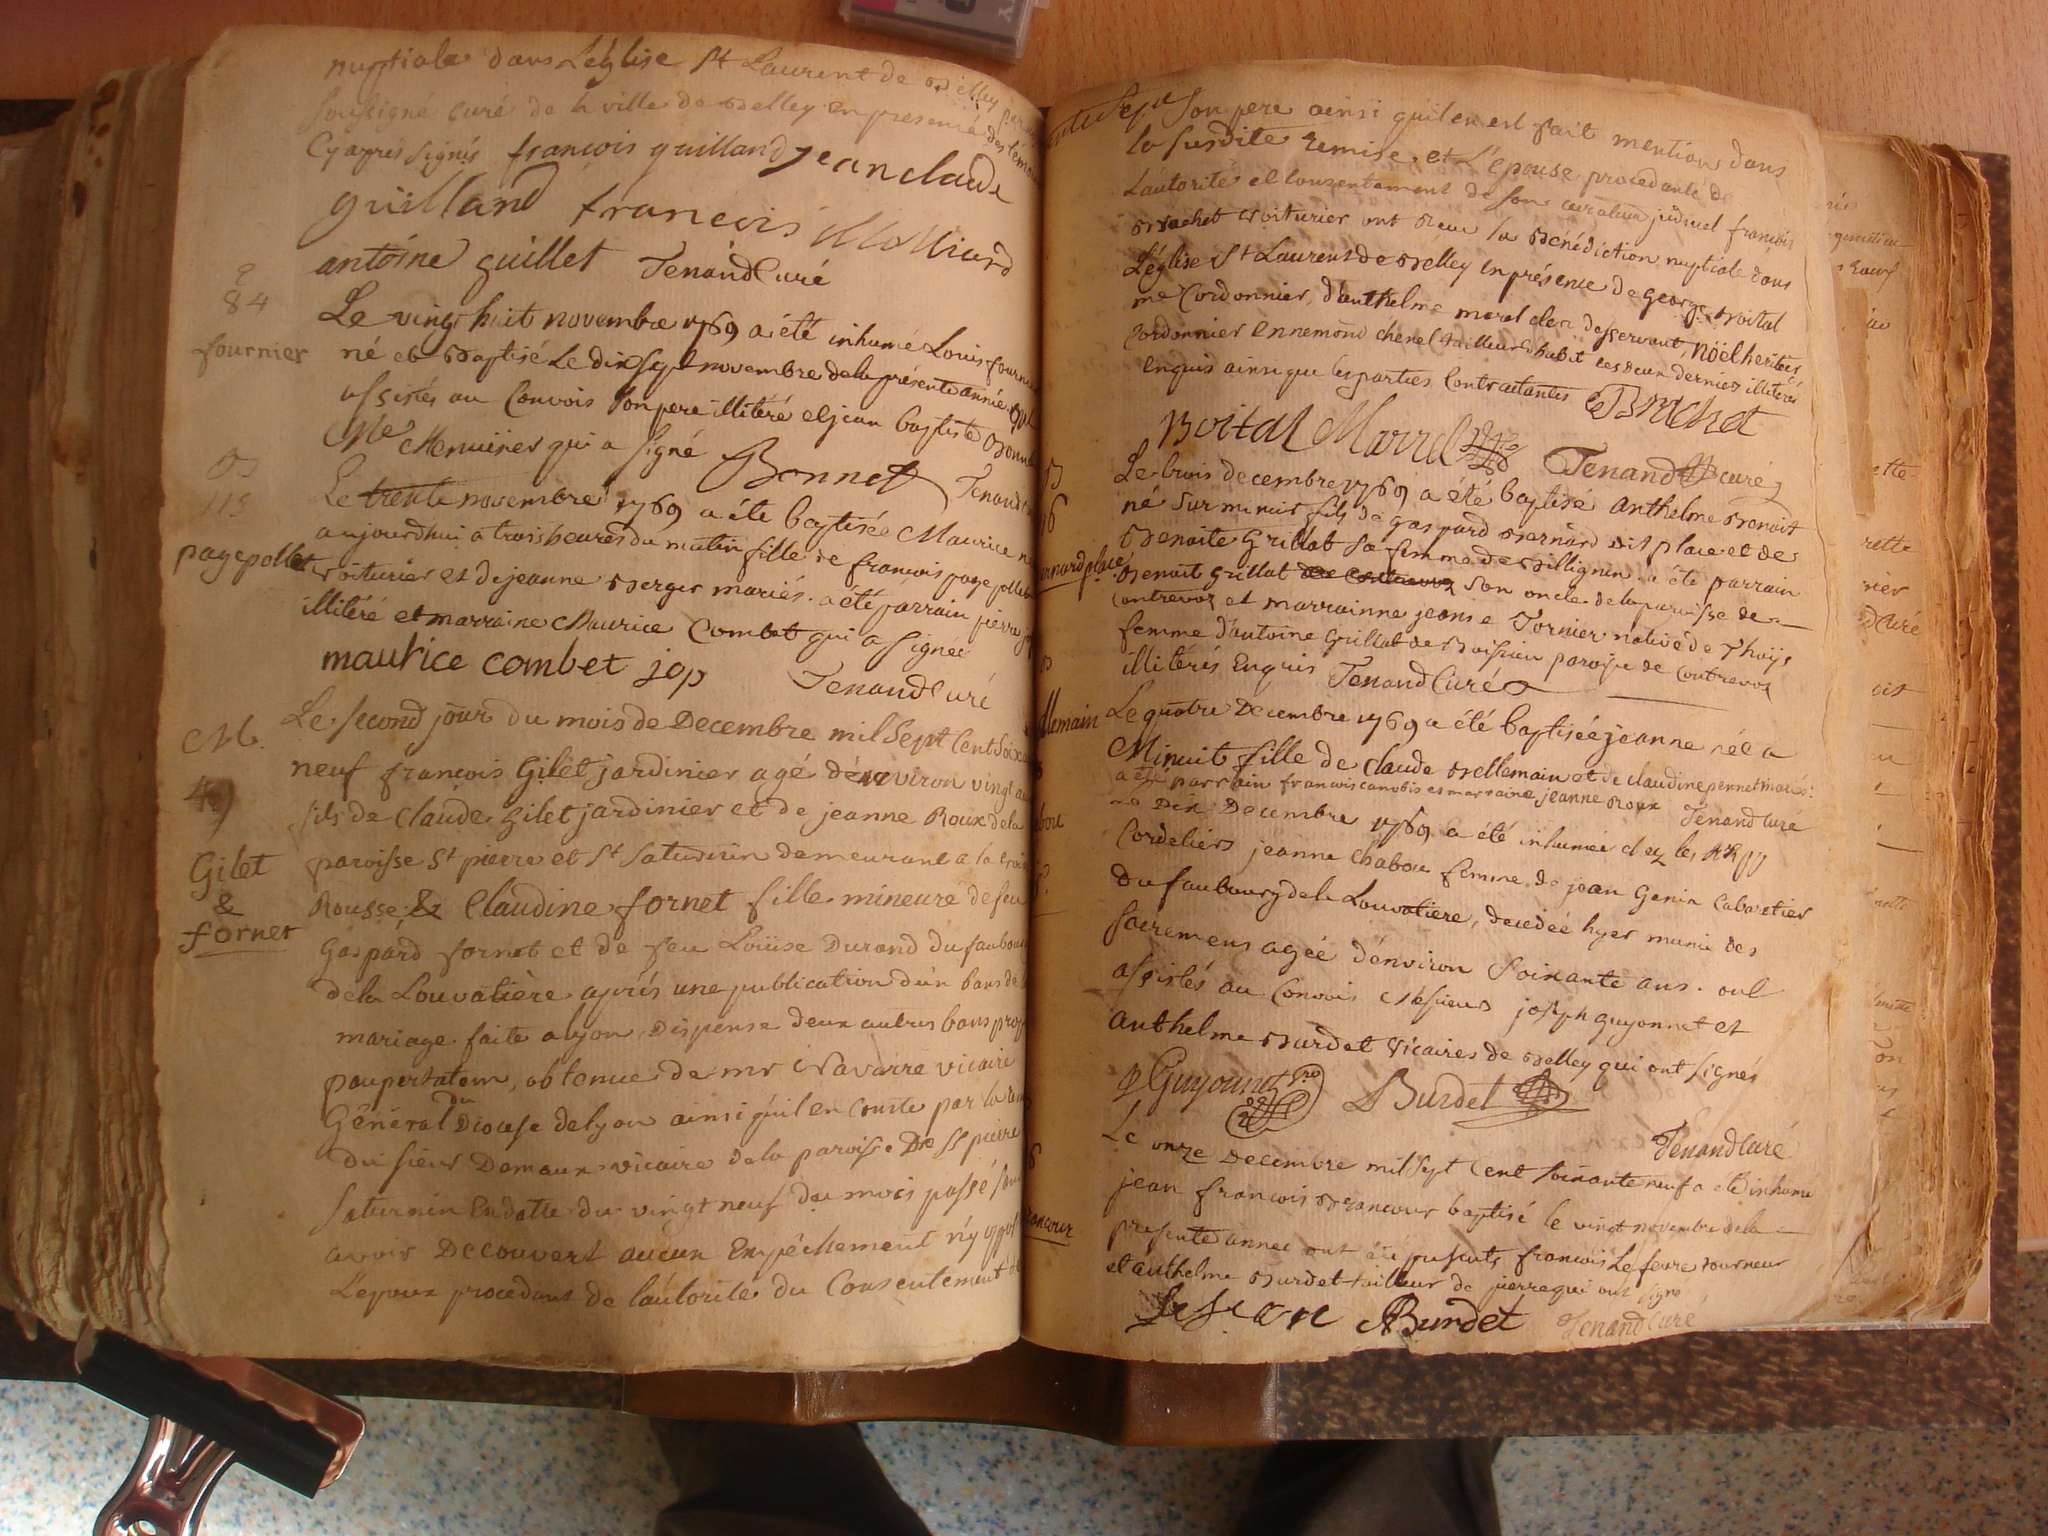 nuptiale dans L'église St Laurent de Belley par
soussigné curé de la ville de Belley en presence des temoins
Cy apres signés françois guilland jean claude
guilland françois Molliard
antoine guillet Tenand Curé
84
fournier
Le vingt huit novembre 1769 a été inhumé Louis fournier
né et Baptisé Le dix sept novembre de la présente année
assistés au Convois son pere illitéré et jean baptiste Bonnet
Me Menuisier qui a signé Bonnet Tenand
B
113
page pollet
Le trente novembre 1769 a été baptisée Maurice née
aujourdhui a trois heures du matin fille de françois page pollet
voiturier et de jeanne Berger mariés. a été parrain pierre
illitéré et marraine Maurice Combet qui a signée
maurice combet jop Tenand Curé
M.
49
Gilet
&
fornet
Le second jour du mois de Decembre mil Sept Cent Soixante
neuf françois Gilet jardinier agé d'environ vingt ans
fils de claude Gilet jardinier et de jeanne Roux de la
paroisse St pierre et St Saturnin demeurant a la croix
Rousse, & Claudine fornet fille mineure de feu
Gaspard fornet et de feu Loüise Durand du faubourg
de la Louvatière après une publication d'un bans de
mariage faite a lyon, Dispense deux autres bans
paupertatem, obtenue de mr Navarre vicaire
Général du Diocese de lyon ainsi qu'il en conste par la
du sieur Damaux vicaire de la paroisse De St pierre
Saturnin En datte du vingt neuf du mois passé sans
avoir Decouvert aucun Empéchement n'y
L'epoux procedant de l'autorité du Consentement de
son pere ainsi qu'il en est fait mention dans
la susdite remise, et L'epouse procedante de
L'autorité et Consentement de son curateur judiciel françois
Brachet voiturier ont Reçu la Bénédiction nuptiale dans
L'église St Laurent de Belley En présence de george Boital
me Cordonnier, d'anthelme marel clerc desservant, nöel heritier
Cordonnier Ennemond chenel tailleur d'habit ces deux derniers illiterés
enquis ainsi que les parties Contractantes Brachet
Boital Marrel Tenand curé
B
bernard place
Le trois decembre 1769 a été baptisé anthelme Benoit
né sur minuit fils de gaspard Bernard dit place et de
Benoite Grillat sa femme de Billignin. a été parrain
Benoit Grillat son oncle de la paroisse de
Contrevoz et marrainne jeanne Tornier native de Thuys
femme d'antoine Grillat de Boissieu paroisse de Contrevoz
illitérés Enquis Tenand Curé
B
Bellemain
Le quatre Decembre 1769 a été baptisée jeanne née a
Minuit fille de claude Bellemain et de claudine pernet mariés.
a été parrain francois canobis et marraine jeanne Roux Tenand Curé
Le Dix Decembre 1769 a été inhumée chez les RR pp
Cordeliers jeanne chabou femme de jean Genin Cabaretier
du faubourg de la Louvatiere, decedée hyer munie des
sacremens agée d'environ soixante ans. ont
assistés au Convois Messieurs joseph guyonnet et
anthelme Burdet vicaires de Belley qui ont signés
Guyonnet Burdet
Tenand Curé
Le onze Decembre mil Sept Cent soixante neuf a été inhumé
jean françois Brancour baptisé le vingt novembre de la
presente année ont été presents françois Lefevre tourneur
et anthelme Burdet tailleur de pierre qui ont signé
Burdet Tenand Curé